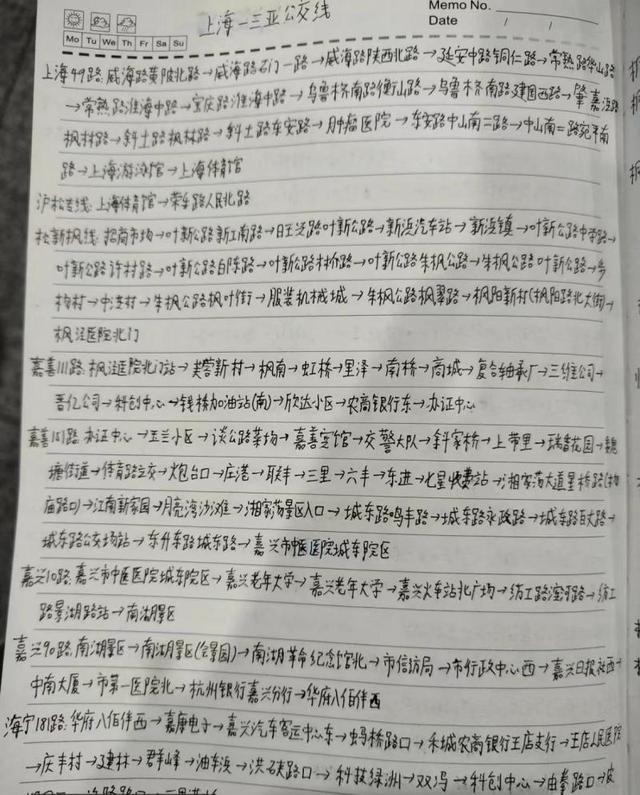 上海—三亚公交线
Memo No.
Date / /
Mo Tu We Th Fr Sa Su
上海49路:威海路黄陂北路→威海路石门一路→威海路陕西北路→延安中路铜仁路→常熟路华山路
→常熟路淮海中路→宝庆路淮海中路→乌鲁木齐南路衡山路→乌鲁木齐南路建国西路→肇嘉浜路
枫林路→斜土路枫林路→斜土路东安路→肿瘤医院→东安路中山南二路→中山南二路宛平南
路→上海游泳馆→上海体育馆
沪松专线:上海体育馆→荣乐路人民北路
松新枫线:招商市场→叶新公路新江南路→叶新公路→新浜汽车站→新浜镇→叶新公路中
叶新公路许村路→叶新公路白陈路→叶新公路林桥路→叶新公路朱枫公路→朱枫公路叶新公路→
村→中村→朱枫公路枫叶街→服装机械城→朱枫公路枫翠路→枫阳新村(枫阳路北大街)→
枫泾医院北门
嘉善111路:枫泾医院北门站→芙蓉新村→枫南→虹桥→里泽→南桥→商城→复合轴承厂→三维公司→
晋亿公司→科创中心→钱桥加油站(南)→欣达小区→农商银行东→办证中心
嘉善151路:办证中心→玉兰小区→谈公路菜场→嘉善宾馆→交警大队→斜家桥→上带里→瑞香花园→魏
塘街道→体育路→炮台口→庄港→联丰→三里→六丰→东进→七星收费站→湘家荡大道星桥路(
庙路口)→江南新家园→月亮湾沙滩→湘家荡景区入口→城东路鸣丰路→城东路永政路→城东路百丈路→
城东路公交场站→东升东路城东路→嘉兴市中医医院城东院区
嘉兴10路:嘉兴市中医医院城东院区→嘉兴老年大学→嘉兴老年大学→嘉兴火车站北广场→纺工路→纺工
路景湖路站→南湖景区
嘉兴90路:南湖景区→南湖景区(会景园)→南湖革命纪念馆北→市信访局→市行政中心西→嘉兴日报社西→
中南大厦→市第一医院北→杭州银行嘉兴分行→华府八佰伴西
海宁181路:华府八佰伴西→嘉康电子→嘉兴汽车客运中心东→蚂桥路口→禾城农商银行王店支行→王店人民医院
→庆丰村→建林→群峰→油车浜→洪硖路口→科技绿洲→双冯→科创中心→由拳路口→皮